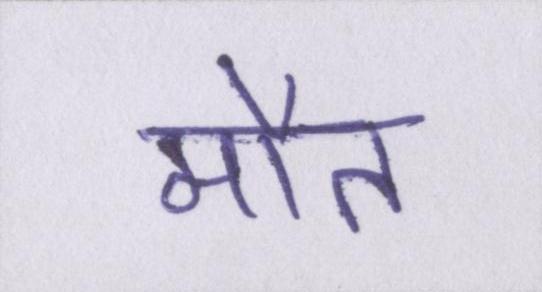 मौत